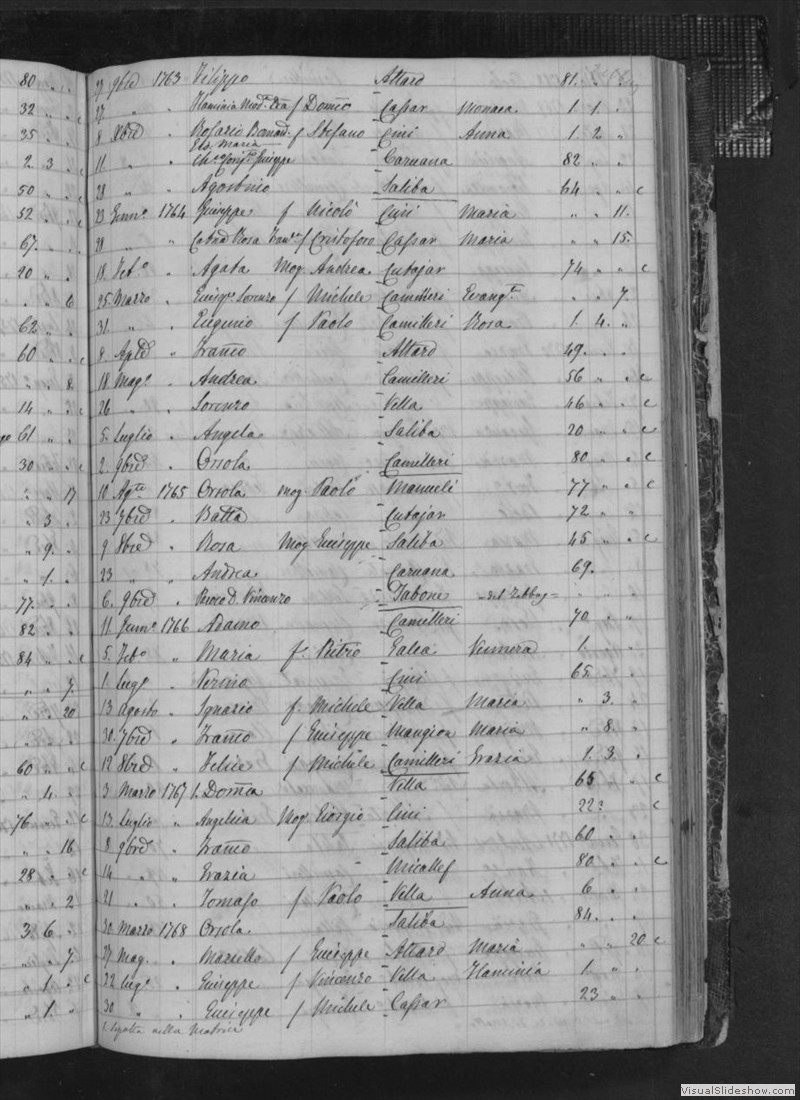 80 . .
32 . . c
35 . .
2 3 . c
50 . . c
52 . . c
67 . .
20 . .
. . 6
62 . .
60 . . c
. . 8
14 . . c
61 . .
30 . . c
. . 17
. 3 .
. 9 .
. 1 .
77 . .
82 . .
84 . . c
. . 7
. . 20
60 . . c
. 4 .
76 . . c
. . 16
28 . . c
. . 2
3 6 .
. . 7
. 1 . c
. 1 .
27 9bre 1763 Filippo Attard 81 . .
27 " " Flaminia f Domco Cassar Monaca 1 1 .
8 Xbre " Rosario Bernard. f Stefano Cini Anna 1 2 "
11 " " Giuseppe Caruana 82 " "
28 " " Agostino Saliba 64 " " c
23 Genno 1764 Giuseppe f Nicolò Cini Maria " " 11.
28 " " Catna Rosa f Cristoforo Cassar Maria " " 15.
18 Febo " Agata Mog Andrea Cutajar 74 " " c
25 Marzo " Giuspe Lorenzo f Michele Camilleri Evangta " " 7.
31 " " Eugenio f Paolo Camilleri Rosa 1. 4. "
8 Aple " Franco Attard 49. . .
18 Maggo " Andrea Camilleri 56 " " c
26 " " Lorenzo Vella 46 " . c
5 Luglio " Angela Saliba 20 " " c
2 9bre " Orsola Camilleri 80 " . c
10 Agto 1765 Orsola mog Paolo Manueli 77 " . c
23 7bre " Batta Cutajar 72 " "
9 8bre " Rosa Mog Giuseppe Saliba 45 " . c
23 " " Andrea Caruana 69.
6 9bre " Revdo D. Vincenzo Tabone del Zebbug " " "
11 Genno 1766 Adamo Camilleri 70 . "
5 Febo " Maria f Pietro Galea Vennera 1. " .
1 Lugo " Nerino Cini 65. . .
13 Agosto " Ignazio f Michele Vella Maria " 3. .
30 7bre " Franco f Giuseppe Mangion Maria " 8. .
12 8bre " Felice f Michele Camilleri Grazia 1. 3 .
3 Marzo 1767 1. Domca Vella 65 . c
13 Luglio " Angelica Mog Giorgio Cini 22? c
8 9bre " Franco Saliba 60 . .
14 " " Grazia Micallef 80 . . c
21 " " Tomaso f Paolo Vella Anna 6 . .
20 Marzo 1768 Orsola Saliba 84. . .
27 Mago " Marsello f Giuseppe Attard Maria " " 20 c
22 Lugo " Giuseppe f Vincenzo Vella Flaminia 1. " .
30 " " Giuseppe f Michele Cassar 23 " "
1. Sepolta nella Matrice
VisualSlideshow.com